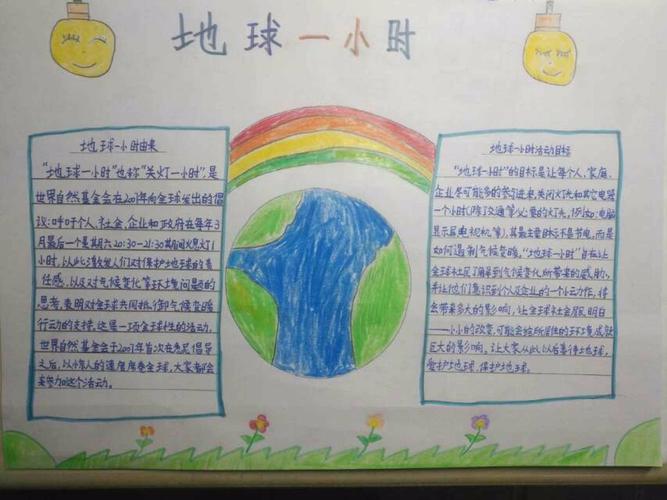 地球一小时
地球一小时由来
"地球一小时"也称"关灯一小时",是
世界自然基金会在2007年向全球发出的倡
议:呼吁个人、社会、企业和政府在每年3
月最后一个星期六20:30-21:30期间熄灯1
小时,以此激发人们对保护地球的责
任感,以及对气候变化等环境问题的
思考,表明对全球共同抵御气候变暖
行动的支持。这是一项全球性的活动,
世界自然基金会于2007年首次在悉尼倡导
之后,以惊人的速度席卷全球,大家都会
来参加这个活动。
地球一小时活动目标
"地球一小时"的目标是让每个人、家庭、
企业尽可能多的参与进来,关闭灯光和其它电器
一个小时(除交通等必要的灯光,例如:电脑
显示屏电视机等),其最主要目标还不是节电,而是
如何遏制气候变暖,"地球一小时"旨在让
全球社区了解到气候变化所带来的威胁,
并让他们意识到个人及企业的一个小动作,将
会带来多大的影响,让全球社会居民明白
一小小的改变,可能会给所居住的环境成就
巨大的影响。让大家从此以后善待地球,
爱护地球,保护地球。